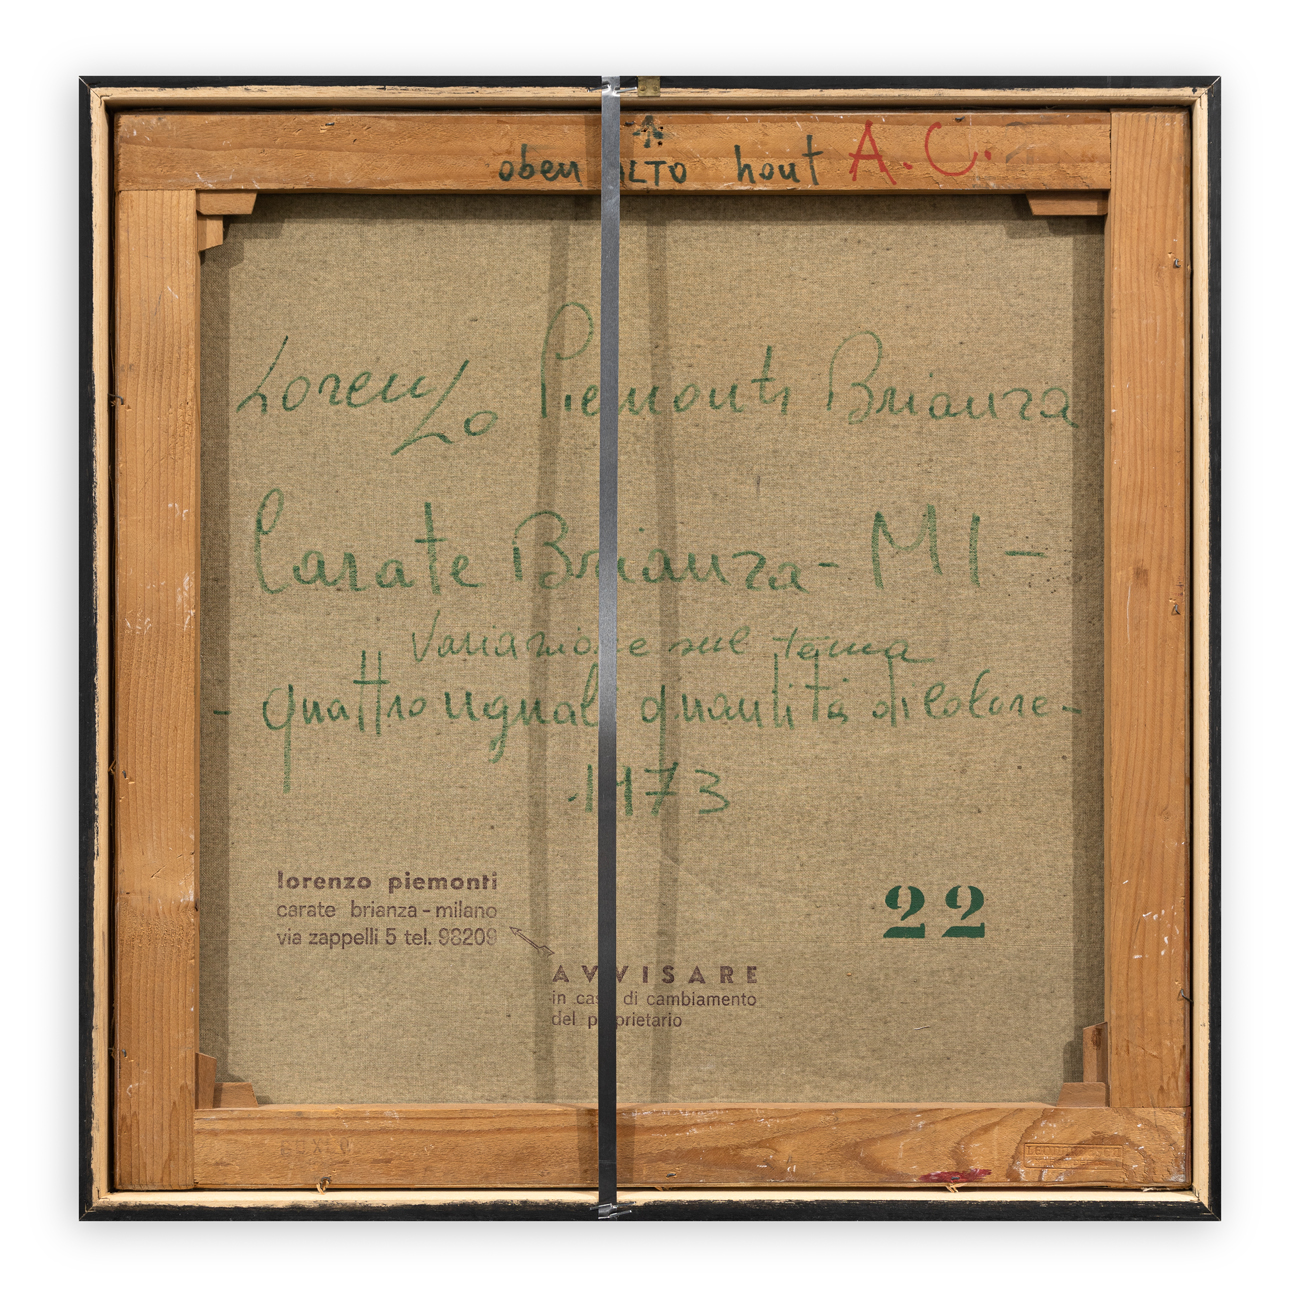 oben ALTO hout A.C.
Lorenzo Piemonti Brianza
Carate Brianza - MI -
Variazione sul tema
- quattro ugual quantità di colore -
1973
lorenzo piemonti
carate brianza - milano
via zappelli 5 tel. 98209
22
AVVISARE
in caso di cambiamento
del proprietario